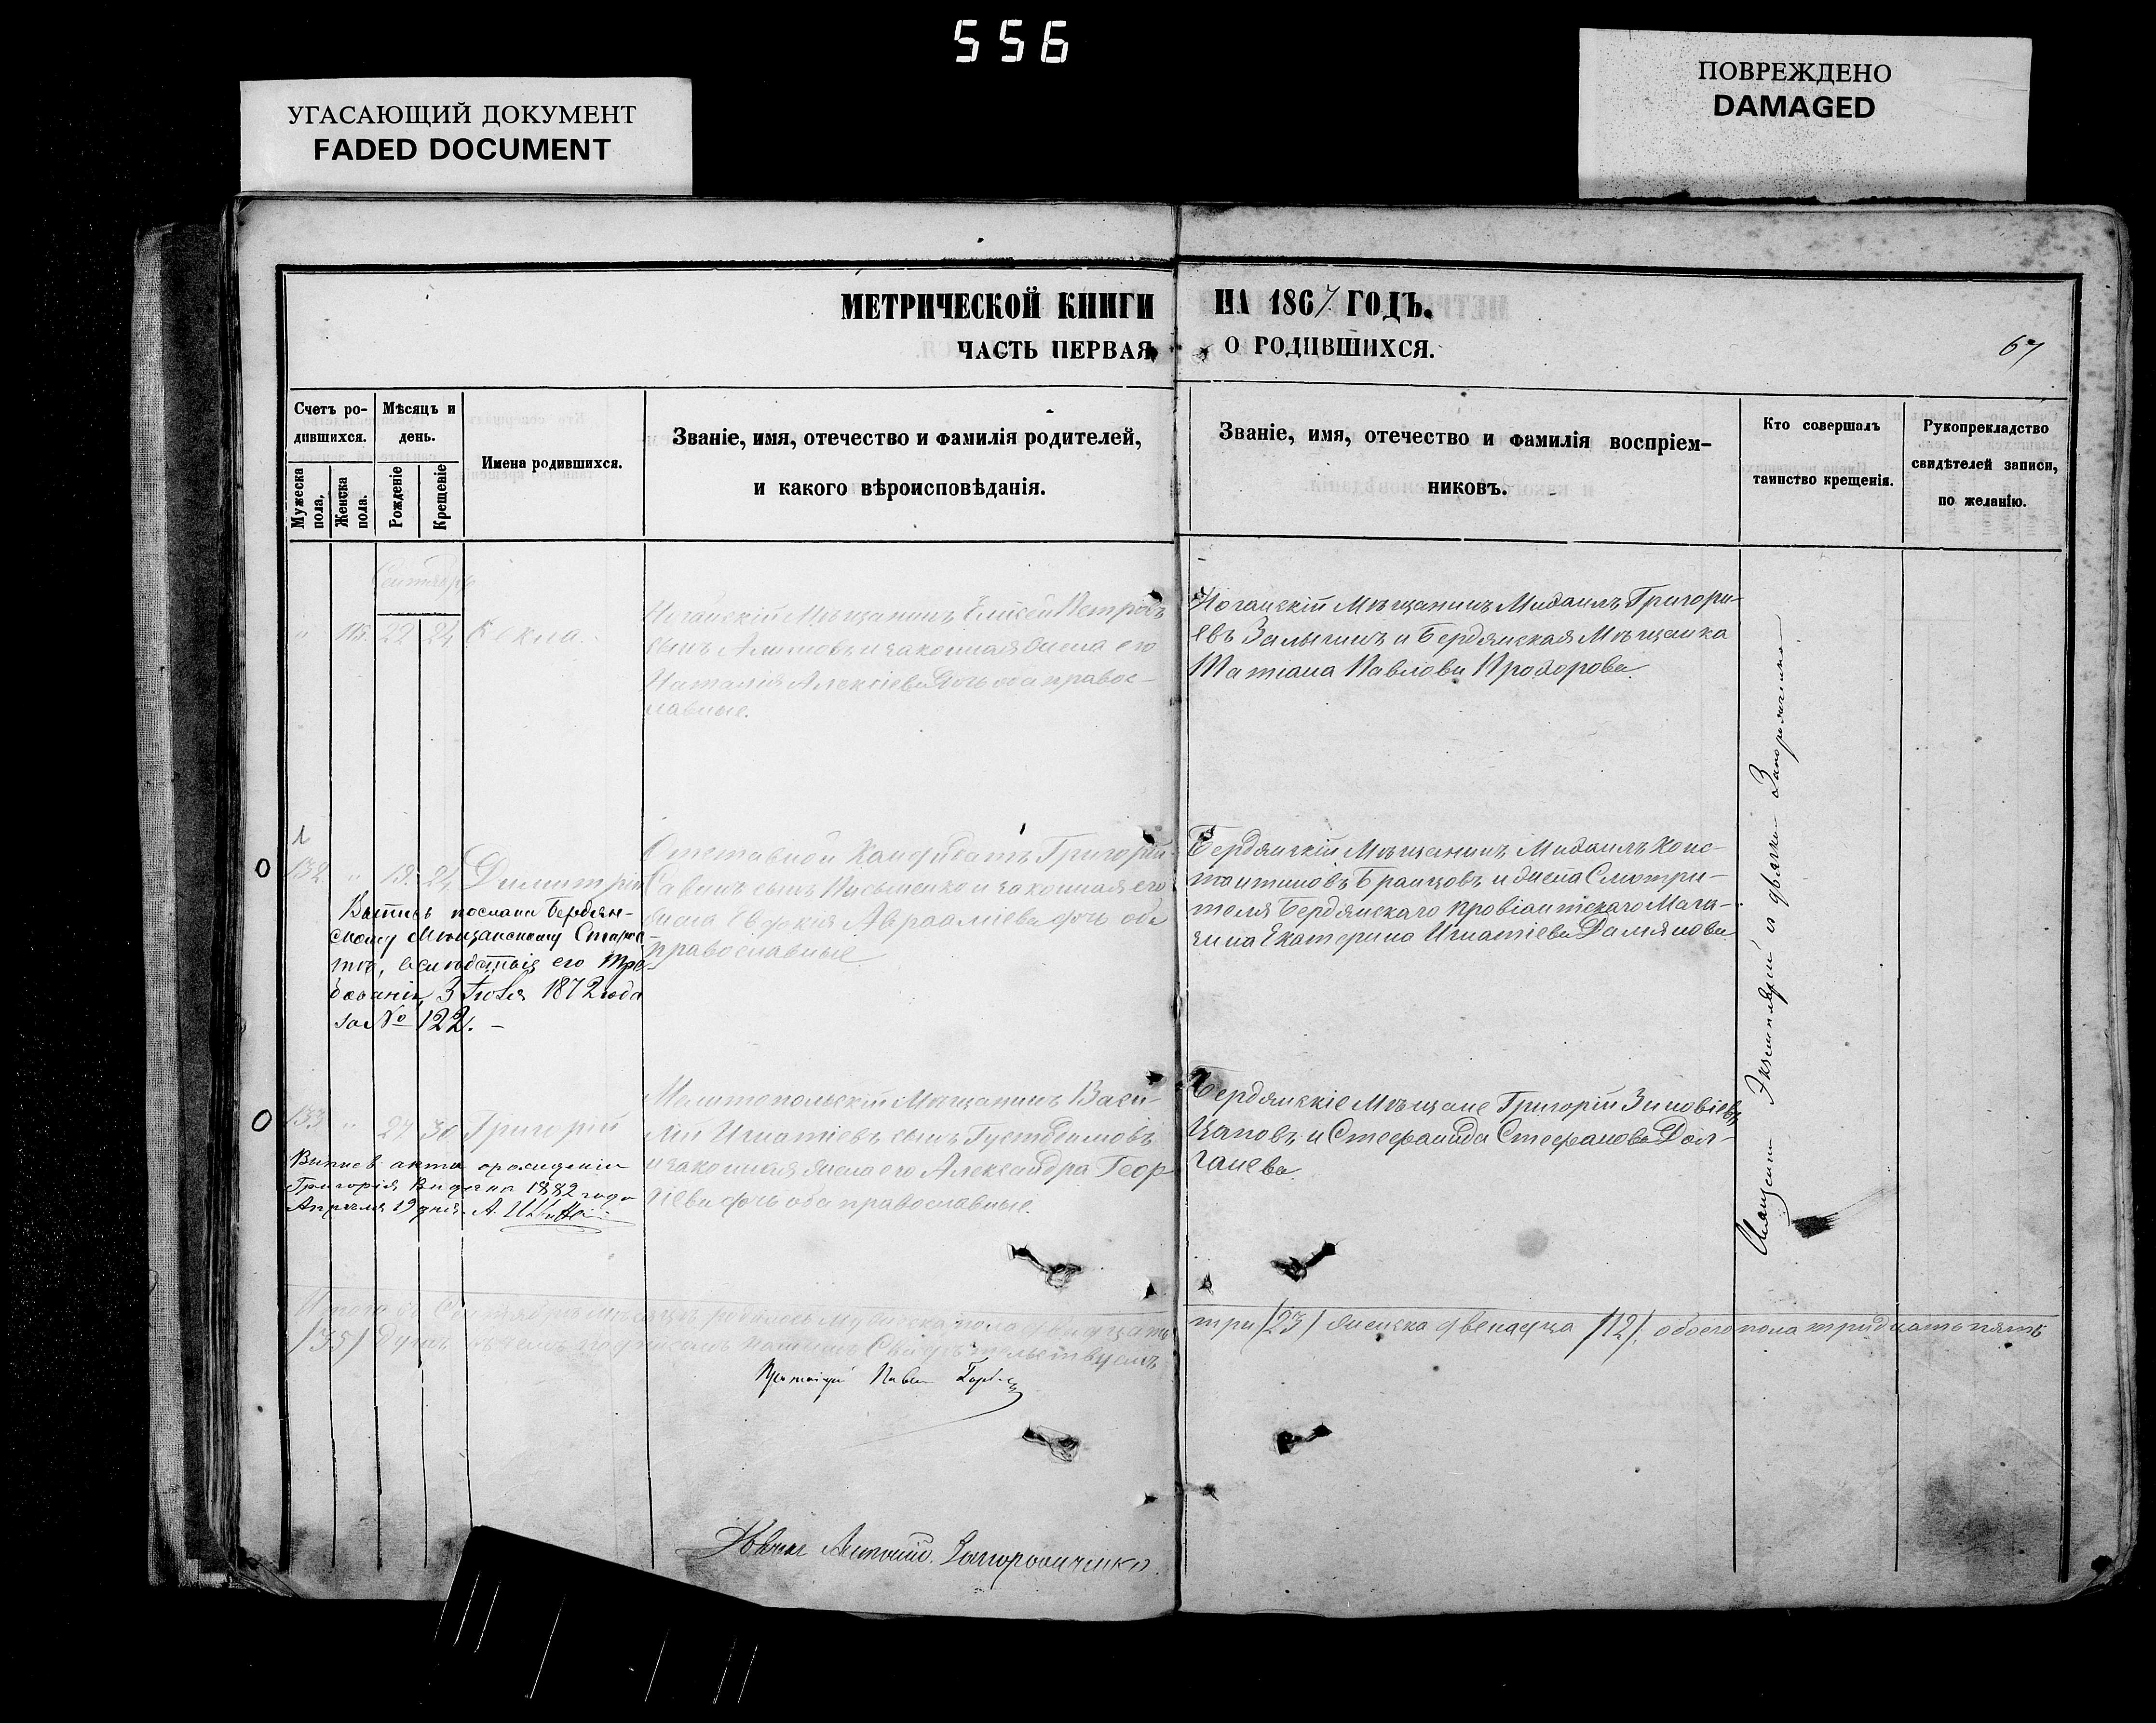 556
УГАСАЮЩИЙ ДОКУМЕНТ
FADED DOCUMENT
ПОВРЕЖДЕНО
DAMAGED
МЕТРИЧЕСКОЙ КНИГИ НА 1867 ГОДЪ.
ЧАСТЬ ПЕРВАЯ О РОДИВШИХСЯ.
67
Счетъ ро-
дившихся.
Мужеска пола,
Женска пола.
Мѣсяцъ и
день.
Рожденіе
Крещеніе
Имена родившихся.
Званіе, имя, отечество и фамилія родителей,
и какого вѣроисповѣданія.
Званіе, имя, отечество и фамилія воспріем-
никовъ.
Кто совершалъ
таинство крещенія.
Рукоприкладство
свидѣтелей записи,
по желанію.
Сентябрь
" 115 22 24 Ѳекла.
Ногайскій Мѣщанинъ Елисей Петровъ
сынъ Алимовъ и законная жена его
Наталія Алексіева дочь оба правос-
лавные.
Ногайскій Мѣщанинъ Михаилъ Григори-
евъ Залыгинъ и Бердянская Мѣщанка
Татіана Павлова Прохорова.
132 " 19. 24 Димитрій
Выпись послана Бердян-
скому Мѣщанскому Старос-
тѣ, вслѣдствіе его тре-
бованія, 3 Іюля 1872 года
за № 122. -
Отставной Кандидатъ Григорій
Савинъ сынъ Письменко и законная его
жена Евдокія Авраамiева дочь оба
православные
Бердянскій Мѣщанинъ Михаилъ Конс-
тантиновъ Бранцовъ и жена Смотри-
теля Бердянскаго Провіантскаго Мага-
зина Екатерина Игнатіева Далянова
133 " 27 30 Григорій
Выпись акта о рожденіи
Григорія Выдана 1882 года
Апрѣля 19 дня.
Мелитопольскій Мѣщанинъ Васи-
лій Игнатіевъ сынъ
и законная жена его Александра Геор-
гіева дочь оба православные.
Бердянскіе Мѣщане Григорій Зиновіевъ
Цаповъ и Стефанида Стефанова Дол-
гачева
Священникъ
Итого въ Сентябрѣ мѣсяцѣ родилось мужеска пола двадцать
три (23) женска двенадца (12), обоего пола тридцать пять
(35) душъ въ чемъ подписомъ нашимъ Свидѣтельствуемъ
Протоіерей Павелъ